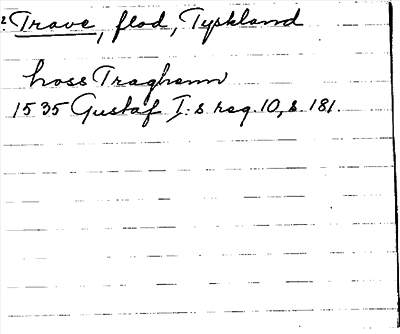 2 Trave, flod, Tyskland
hoss Traghenn
1535 Gustaf I:s reg. 10, s. 181.